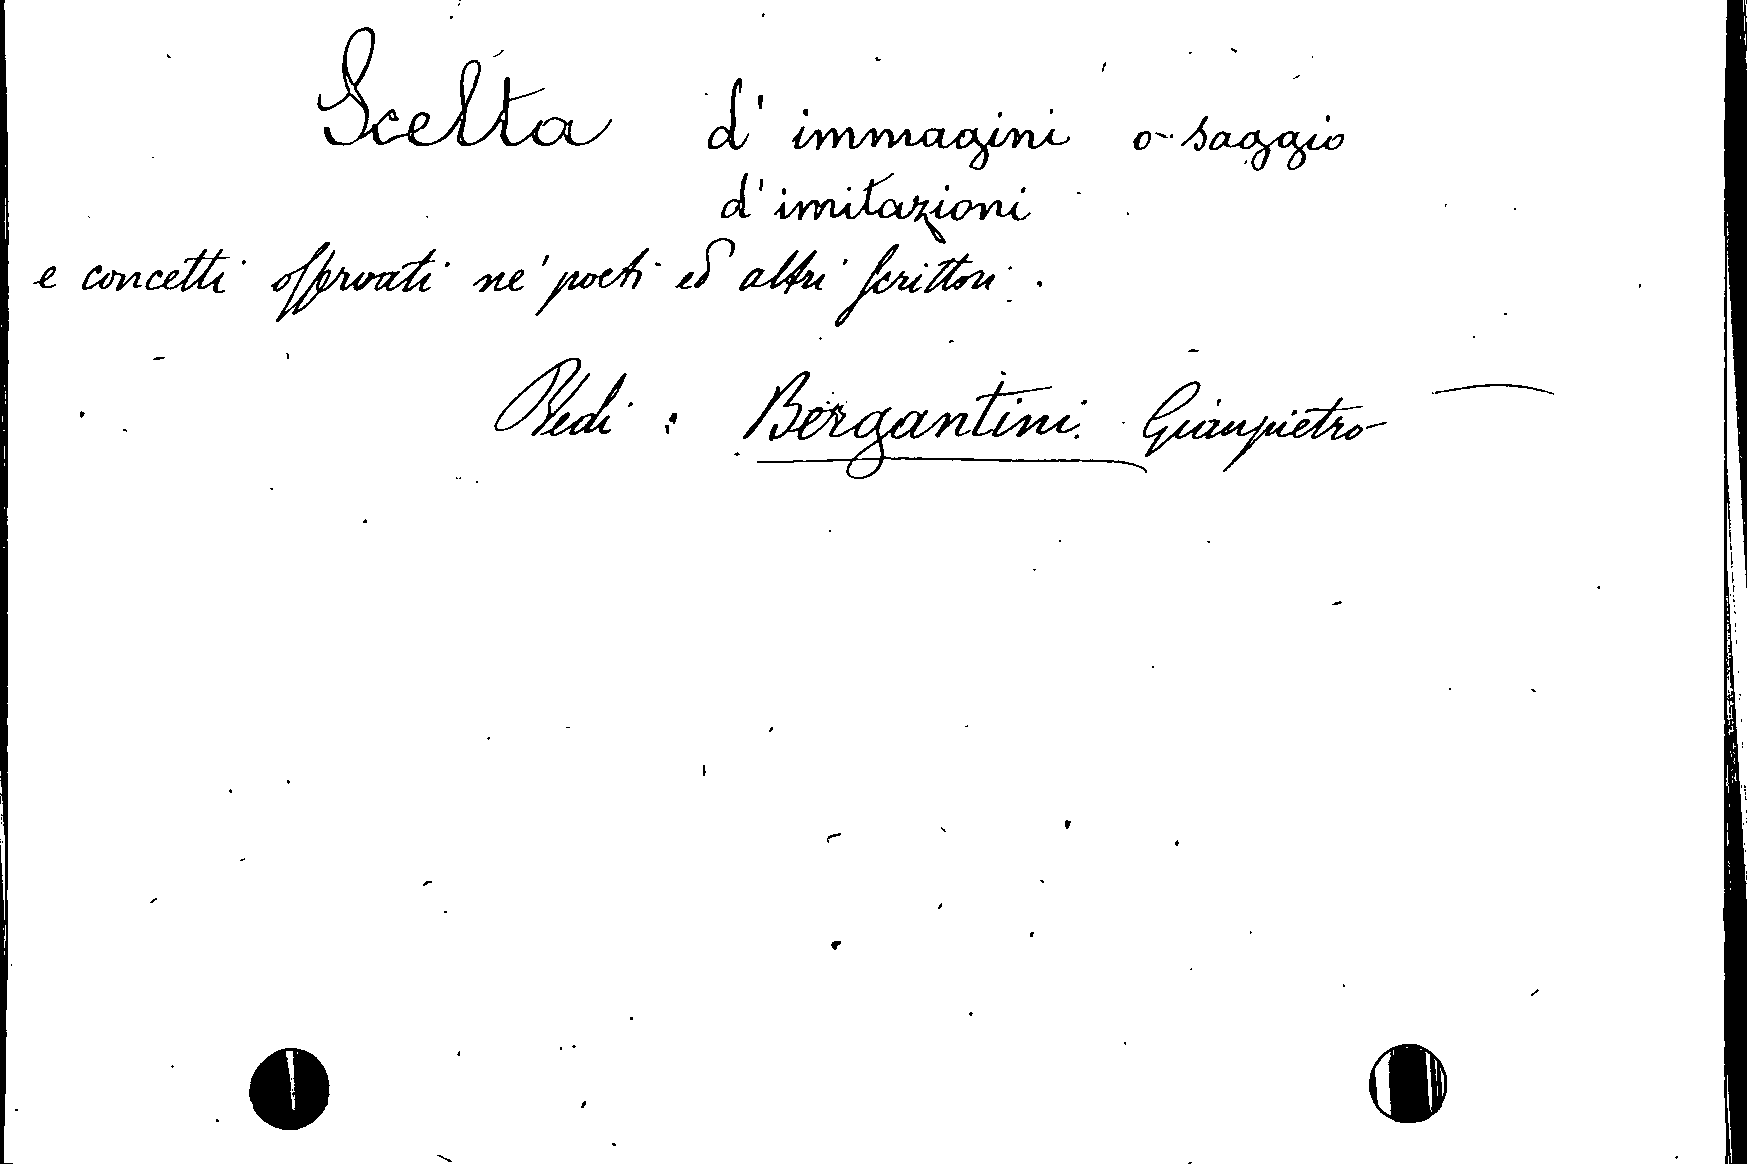 Scelta d'immagini o saggio
d'imitazioni
e concetti osservati ne' poeti ed altri scrittori.
Vedi: Bergantini Gianpietro